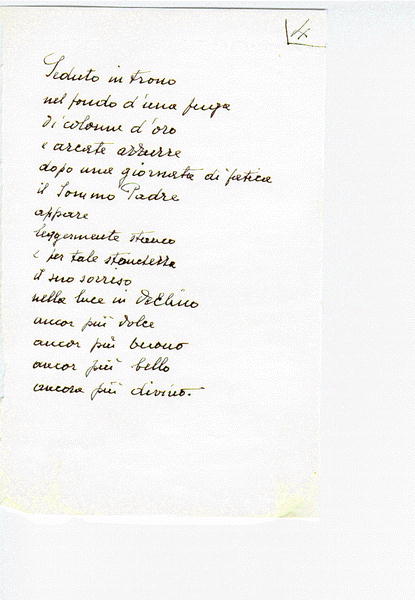 4
Seduto in trono
nel fondo d'una fuga
di colonne d'oro
e arcate azzurre
dopo una giornata di fatica
il Sommo Padre
appare
leggermente stanco
e per tale stanchezza
il suo sorriso
nella luce in declino
ancor più dolce
ancor più buono
ancor più bello
ancora più divino.